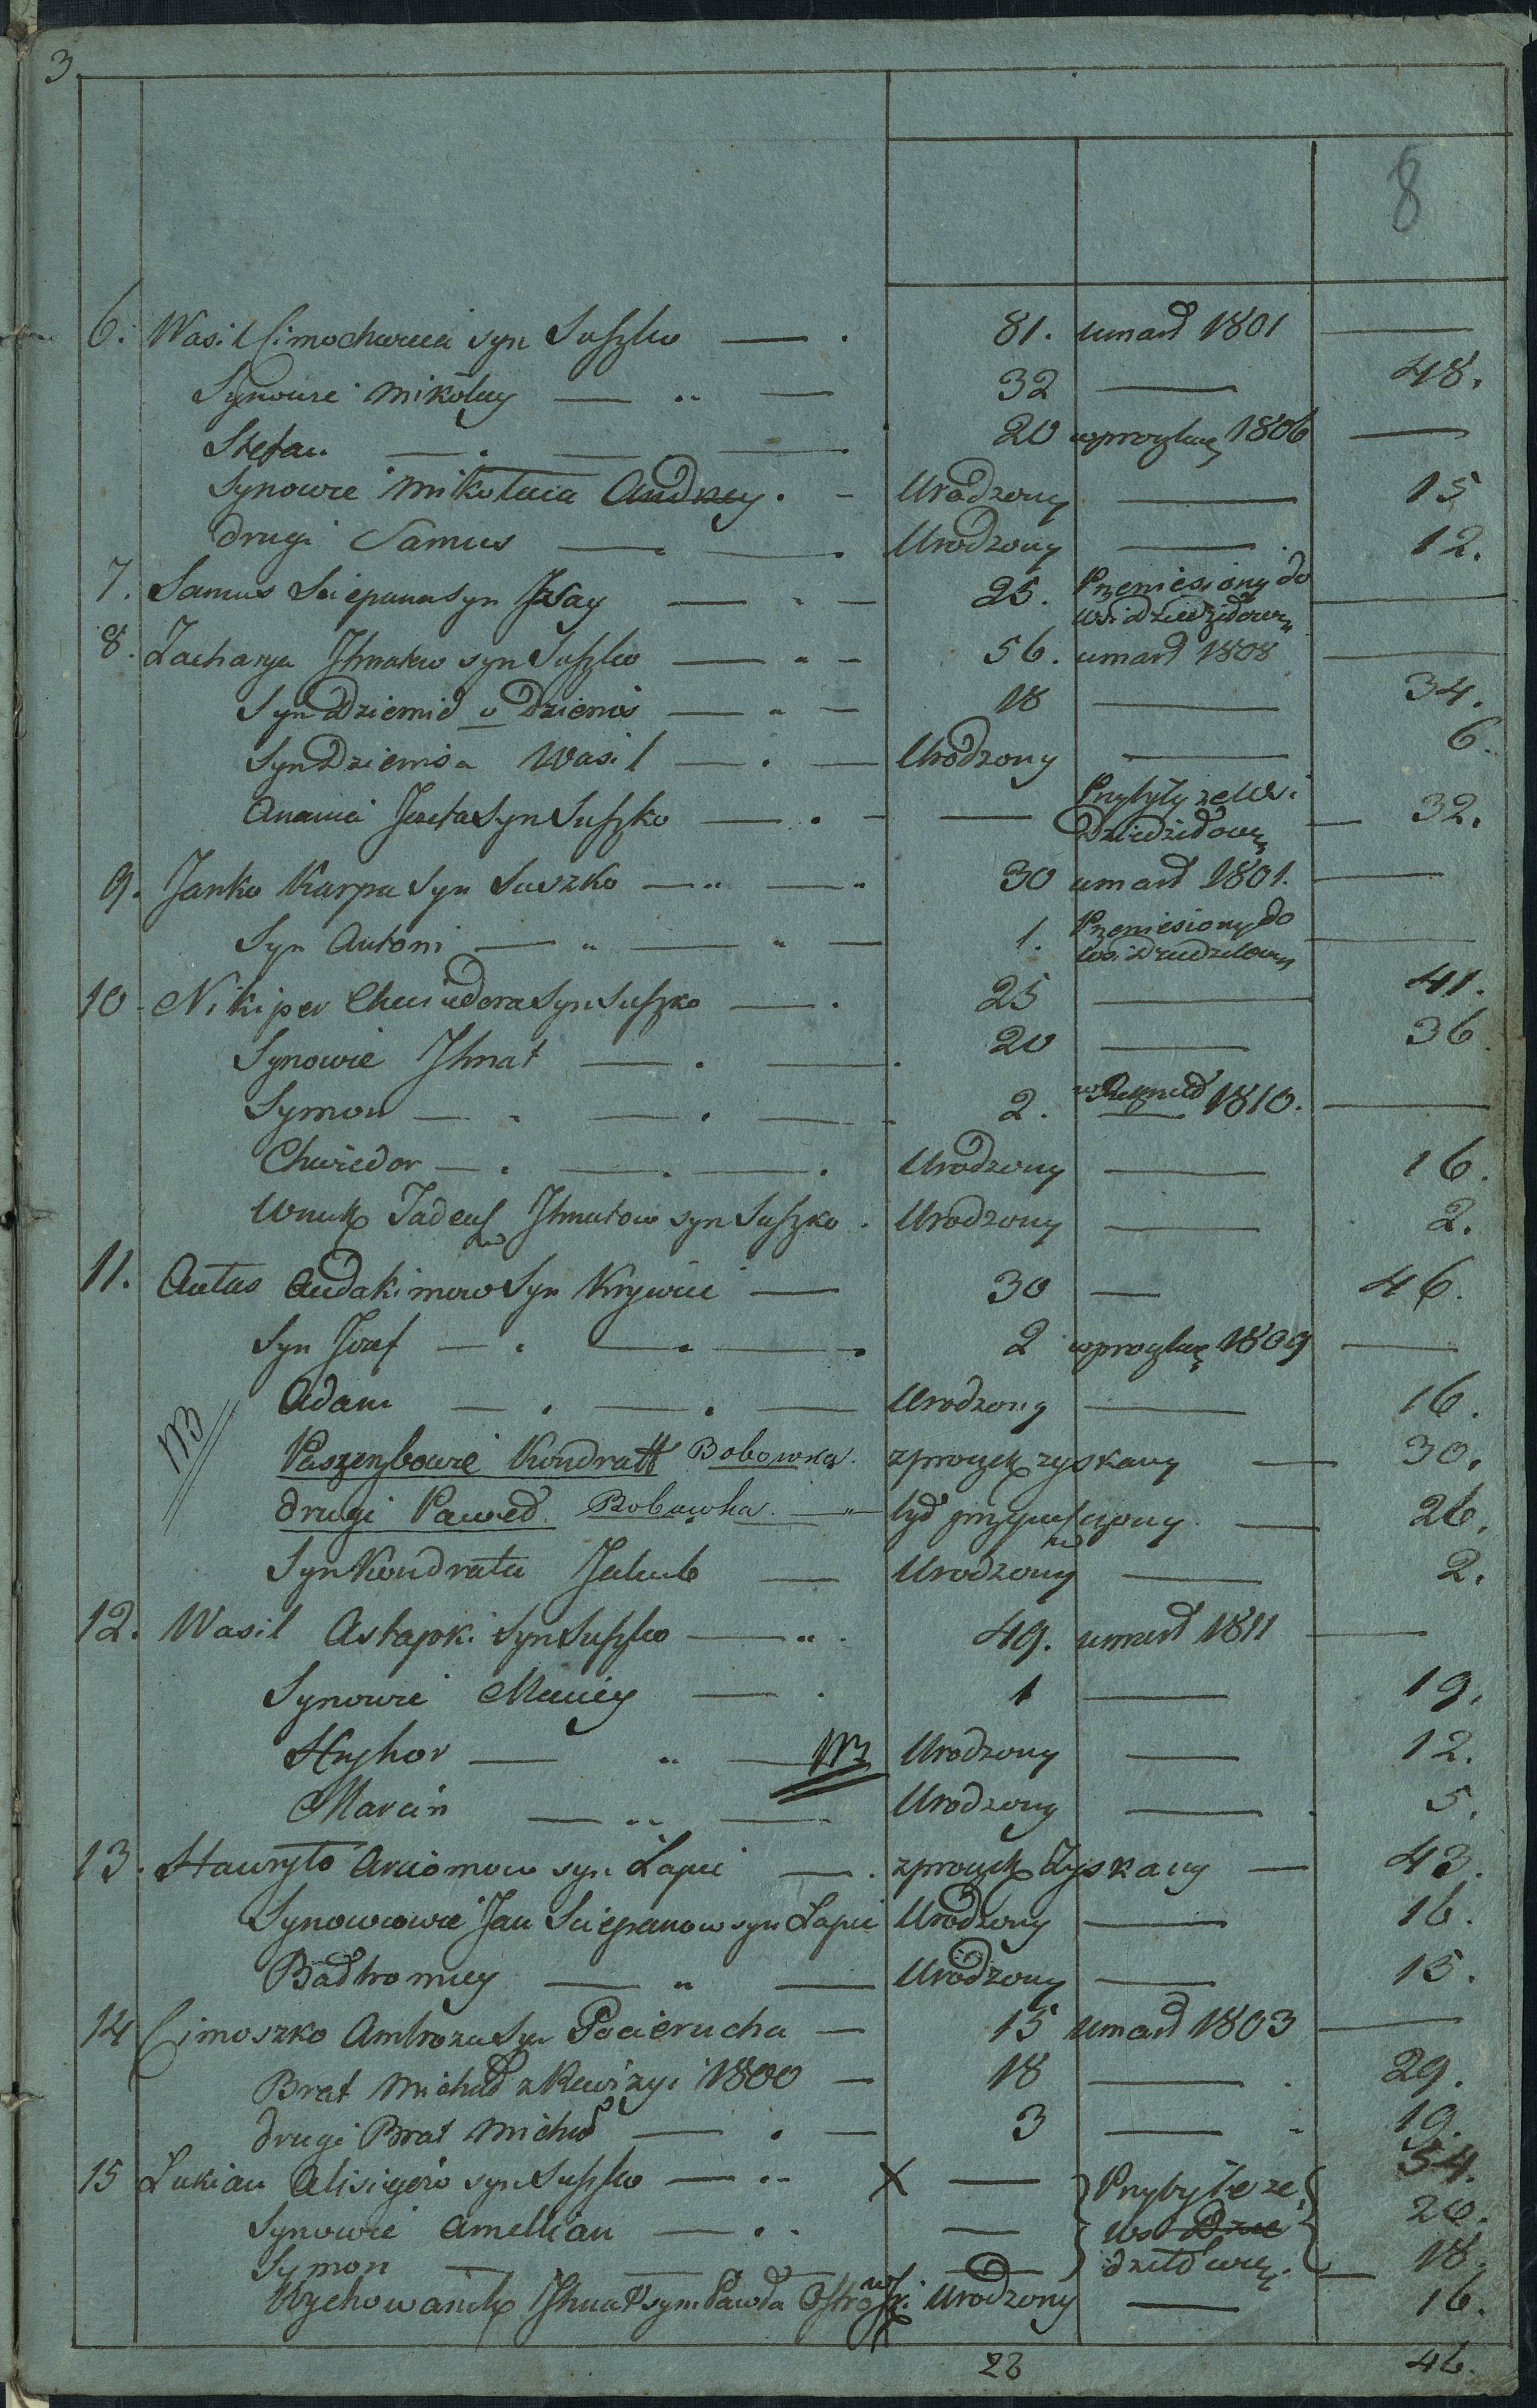 3
8
6. Wasil Cimochwieia syn Suszko 81. umarł 1801
Synowie Mikołay 32 48.
Stefan 20 wprozbuę 1806
Synowie Mikołaia Andrey. Urodzony 15
drugi Samus Urodzony 12.
7. Samus Sciepana syn Isay 25. Przeniesiony do
wsi dziedziłowi
8. Zacharya Ihnatow syn Suszko 56. umarł 1808
Syn Dziemid v Dziemis 18 34.
Syn Dziemisa Wasil Urodzony 6.
Anania Jozefa Syn Suszko Przybyły ze Wsi 32.
Dziedziłowi
9. Janko Karpa Syn Suszko 30 umarł 1801.
Syn Antoni 1. Przeniesiony do
wsi dziedziłowi
10. Nikiper Chwiedora Syn Suszko 25 41.
Synowie Ihnat 20 36.
Symon 2. 1810.
Chwiedor Urodzony 16.
Wnuk Tadeusz Ihnatow syn Suszko. Urodzony 2.
11. Audakimow Syn Krywiec 30 46.
Syn Jozef 2 1809
Adam Urodzony 16.
Paszenbowie Kondratt Bobowka. zyskany 30.
drugi Paweł. Bobowka. był przypuszczony 26.
Syn Kondrata Jakub Urodzony 2.
12. Wasil Astapki Syn Suszko 49. umarł 1811
Synowie Maciey 1 19.
Hryhor Urodzony 12.
Marcin Urodzony 5.
13. Hawryło Arciomow syn Łapeć zyskany 43.
Synowcowie Jan Sciepanow syn Łapeć Urodzony 16.
Bałtromiey Urodzony 15.
14 Cimoszko Ambroza Syn Pocierucha 15 umarł 1803
Brat Michał z Rewizyi 1800 18 29.
drugi Brat Michał 3 19.
15 Lukian Alisieiew syn Suszko X Przybyłe ze 54.
Synowie Amellian wsi Dzie 20.
Symon 18.
Wychowaniek Ihnat syn Pawła Ostrowski Urodzony 16.
23 46.